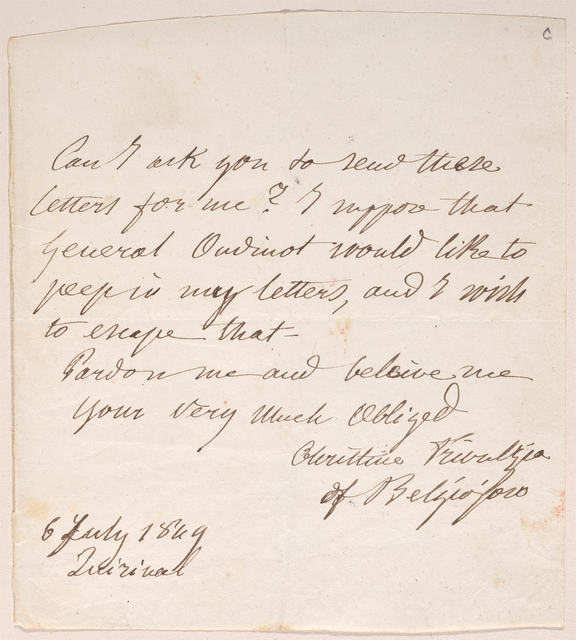 C
Can I ask you to send these
letters for me? I suppose that
General Oudinot would like to
peep in my letters, and I wish
to escape that—
Pardon me and beleive me
Your very much Obliged
Christine Trivulzio
of Belgiojoso
6 July 1849
Quirinal